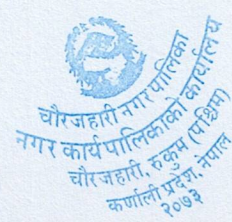 चौरजहारी नगरपालिका
नगर कार्यपालिकाको कार्यालय
चौरजहारी, रुकुम (पश्चिम)
कर्णाली प्रदेश, नेपाल
२०७३